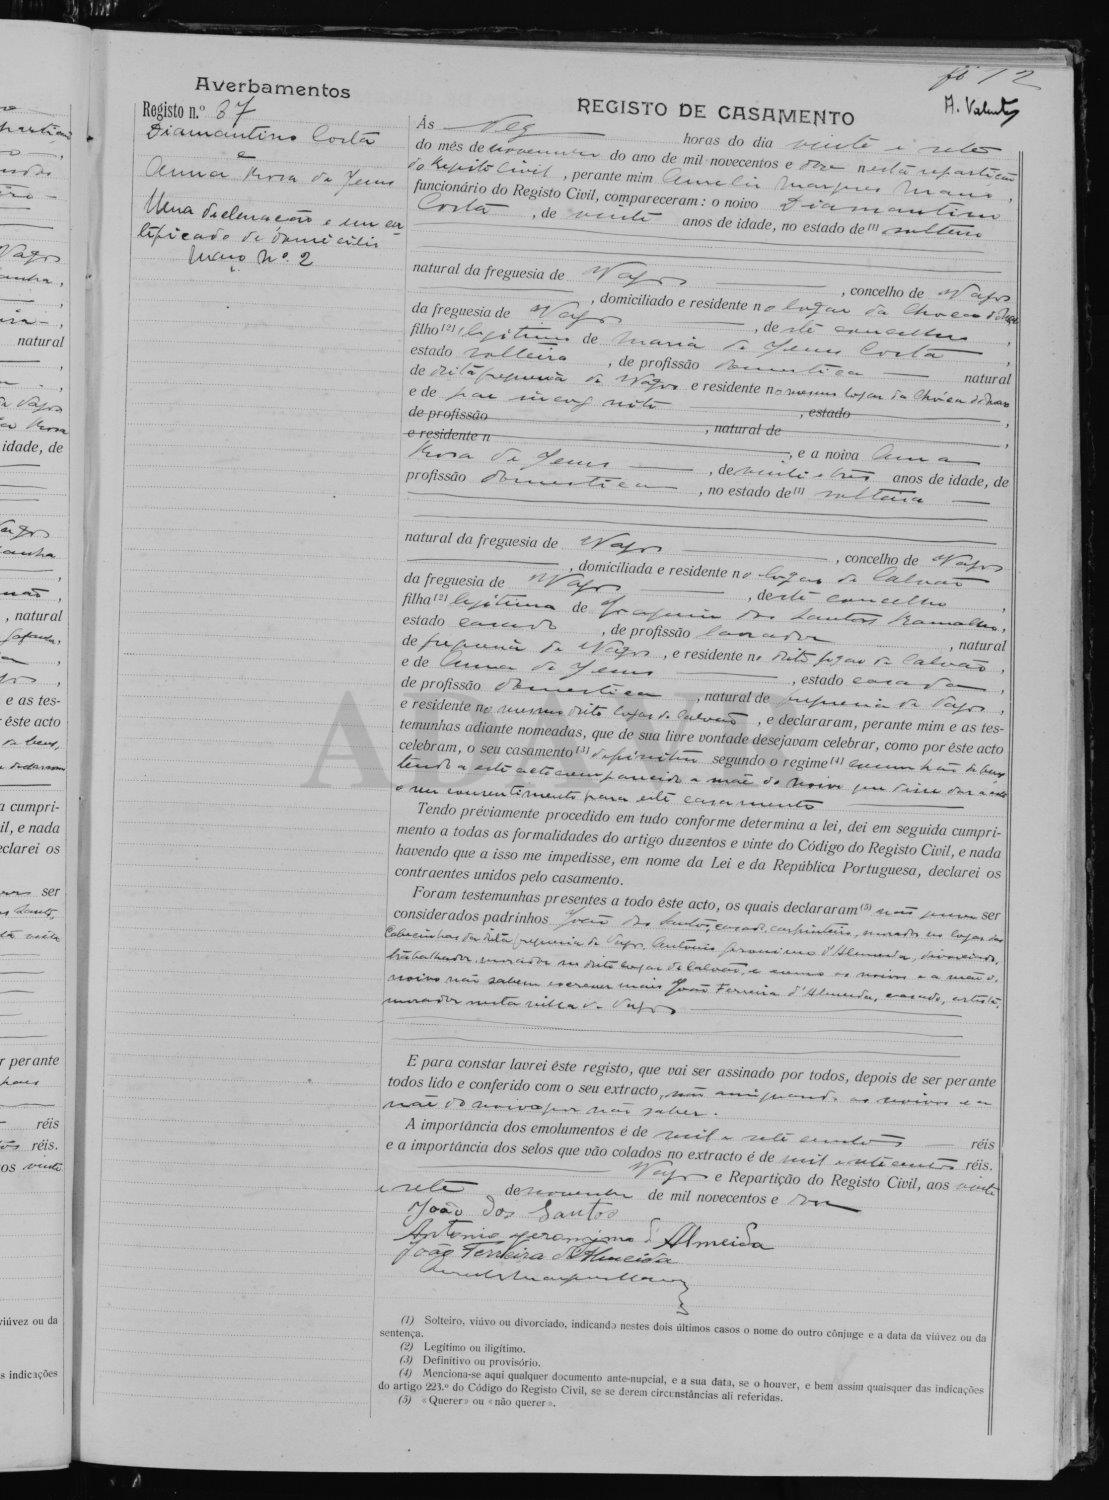 fs 12
A. Valente
Averbamentos
Registo n.º 37
Diamantino Costa
e
Anna Rosa de Jesus
Uma declaração e um cer-
tificado de domicilio
Maço Nº. 2
REGISTO DE CASAMENTO
Ás dez horas do dia vinte e sete
do mês de novembro do ano de mil novecentos e doze nesta repartição
do Registo Civil, perante mim Aurelio Marques Mano,
funcionário do Registo Civil, compareceram: o noivo Diamantino
Costa, de vinte anos de idade, no estado de (1) solteiro
natural da freguesia de Vagos, concelho de Vagos
, domiciliado e residente no logar da Choca do
da freguesia de Vagos, deste concelho,
filho (2) de Maria de Jesus Costa,
estado solteira, de profissão domestica natural
de dita freguesia de Vagos e residente no mesmo logar da Choca do
e de pai incognito, estado,
de profissão, natural de,
e residente n, e a noiva Anna
Rosa de Jesus, de vinte e três anos de idade, de
profissão domestica, no estado de (1) solteira
natural da freguesia de Vagos, concelho de Vagos
, domiciliada e residente no logar de Calvão
da freguesia de Vagos, deste concelho,
filha (2) legitima de Joaquim dos Santos Ramalho,
estado casado, de profissão lavrador, natural
de freguesia de Vagos, e residente no dito logar de Calvão,
e de Anna de Jesus, estado casada,
de profissão domestica, natural de freguesia de Vagos,
e residente no mesmo dito logar de Calvão, e declararam, perante mim e as tes-
temunhas adiante nomeadas, que de sua livre vontade desejavam celebrar, como por êste acto
celebram, o seu casamento (3) definitivo segundo o regime (4) comunhão de bens,
tendo a este acto comparecido a mãe do noivo que disse dar
o seu consentimento para este casamento
Tendo préviamente procedido em tudo conforme determina a lei, dei em seguida cumpri-
mento a todas as formalidades do artigo duzentos e vinte do Código do Registo Civil, e nada
havendo que a isso me impedisse, em nome da Lei e da República Portuguesa, declarei os
contraentes unidos pelo casamento.
Foram testemunhas presentes a todo êste acto, os quais declararam (5) não querer ser
considerados padrinhos João dos Santos, casado, carpinteiro, morador no logar das
Cabecinhas da dita freguesia de Vagos, Antonio Jeronimo d'Almeida, divorciado,
trabalhador, morador no dito logar de Calvão, e como os noivos e a mãe do
noivo não sabem escrever mais João Ferreira d'Almeida, casado, artista,
morador nesta villa de Vagos
E para constar lavrei êste registo, que vai ser assinado por todos, depois de ser perante
todos lido e conferido com o seu extracto, não assignando os noivos e a
mãe do noivo por não saber.
A importância dos emolumentos é de mil e sete centos réis
e a importância dos selos que vão colados no extracto é de mil e sete centos réis.
Vagos e Repartição do Registo Civil, aos vinte
e sete de novembro de mil novecentos e doze
João dos Santos
Antonio Jeronimo d'Almeida
João Ferreira d'Almeida
Aurelio Marques Mano
(1) Solteiro, viúvo ou divorciado, indicando nestes dois últimos casos o nome do outro cônjuge e a data da viúvez ou da
sentença.
(2) Legítimo ou iligítimo.
(3) Definitivo ou provisório.
(4) Menciona-se aqui qualquer documento ante-nupcial, e a sua data, se o houver, e bem assim quaisquer das indicações
do artigo 223.º do Código do Registo Civil, se se derem circunstâncias ali referidas.
(5) «Querer» ou «não querer».